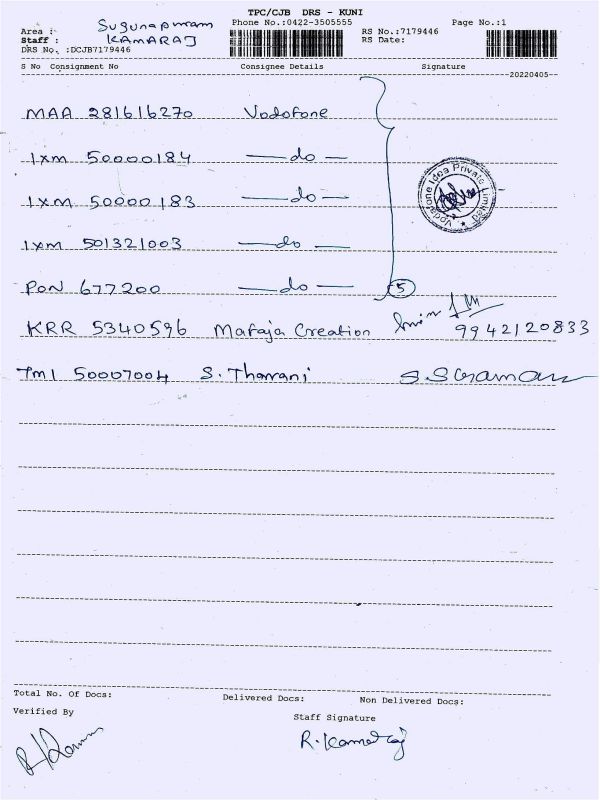 TPC/CJB DRS - KUNI
Area : Sugunapuram Phone No.:0422-3505555 Page No.:1
Staff : KAMARAJ RS No.:7179446
DRS No. :DCJB7179446 RS Date:
S No Consignment No Consignee Details Signature
20220405
MAA 281616270 Vodofone
IXM 50000184 — do —
IXM 50000183 — do —
Vodafone Idea Private Limited
IXM 501321003 — do —
PON 677200 — do — 5
KRR 5340596 Maraja Creation 9942120833
TMI 50007004 S. Tharani
Total No. Of Docs: Delivered Docs: Non Delivered Docs:
Verified By Staff Signature
R. Kamaraj